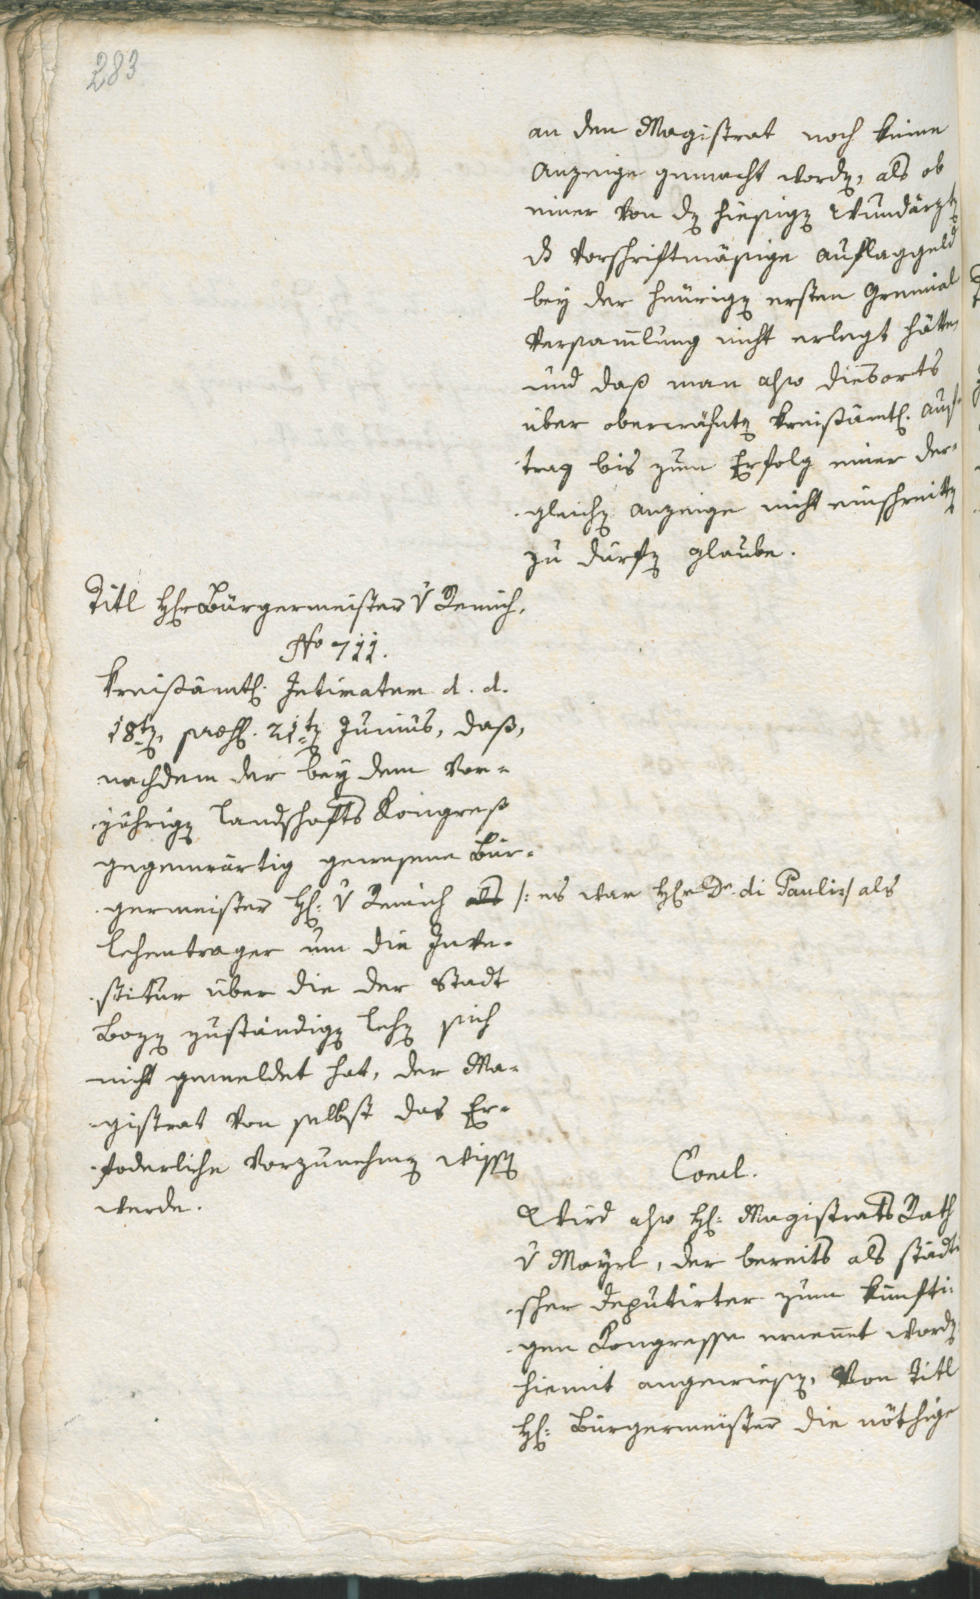 283
an den Magistrat noch keine
Anzeige gemacht worden, als ob
einer von den hiesigen Wundärzten
das vorschriftmäsige Auflaggeld
bey der heürigen ersten Gremial
Versam̄lung nicht erlegt hätte,
und daß man also diesorts
über oberwähnten kreisämtl. Auf-
trag bis zum Erfolg einer der-
gleichen Anzeige nicht einschreiten
zu därfen glaube.
Titl Hr Bürgermeister v Remich,
No 711.
Kreisämtl. Intimatum d. d.
18ten, praes. 21ten Junius, daß,
nachdem der bey dem vor-
jährigen Landschafts Kongreß
gegenwärtig gewesene Bür-
germeister H: v Remich als /: es war Hr Dr. di Pauli :/ als
Lehentrager um die Inve-
stitur über die der Stadt
Bozen zuständigen Lehen sich
nicht gemeldet hat, der Ma-
gistrat von selbst das Er-
foderliche vorzunehmen wissen
werde.
Concl.
Wird also H: Magistrats Rath
v Mayrl, der bereits als städti-
scher Deputirter zum künfti-
gen Kongresse ernen̄t worden
hiemit angewiesen, von Titl
H: Bürgermeister die nöthige